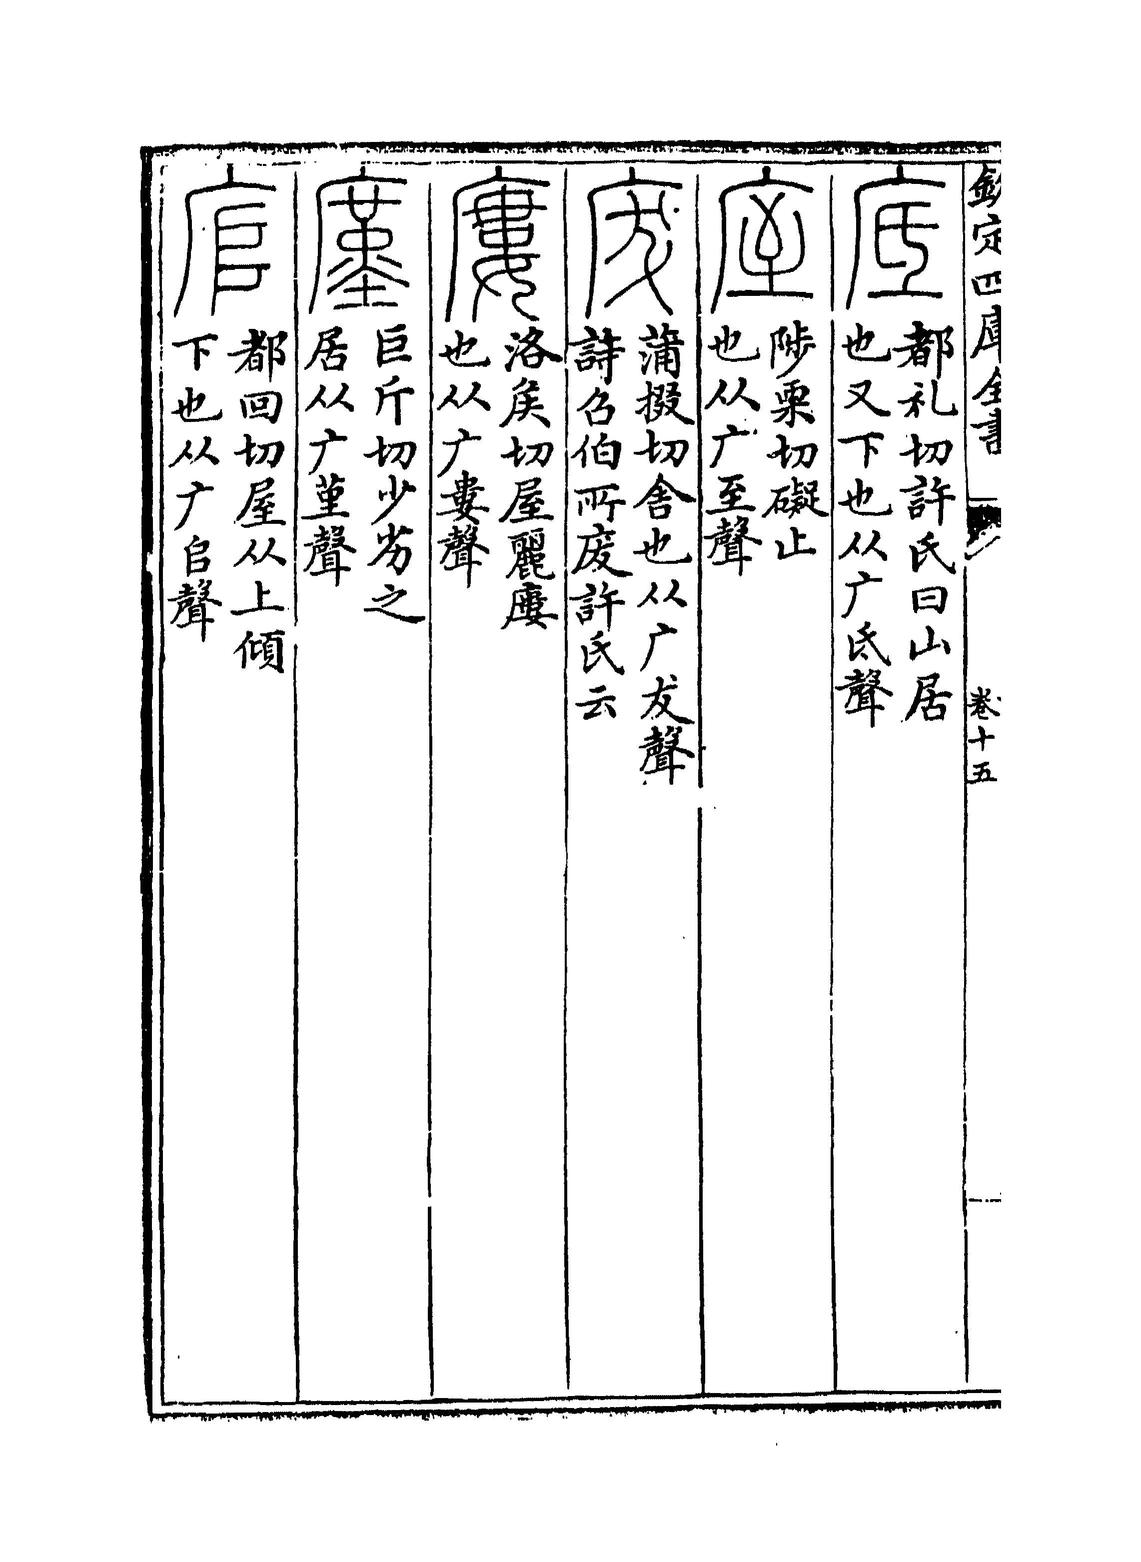 欽定四庫全書
卷十五
底
都礼切許氏曰山居
也又下也从广氐聲
庢
陟栗切礙止
也从广至聲
废
蒲掇切舍也从广犮聲
詩召伯所废許氏云
廔
洛矦切屋麗廔
也从广婁聲
廑
巨斤切少劣之
居从广堇聲
㢈
都回切屋从上傾
下也从广𠂤聲